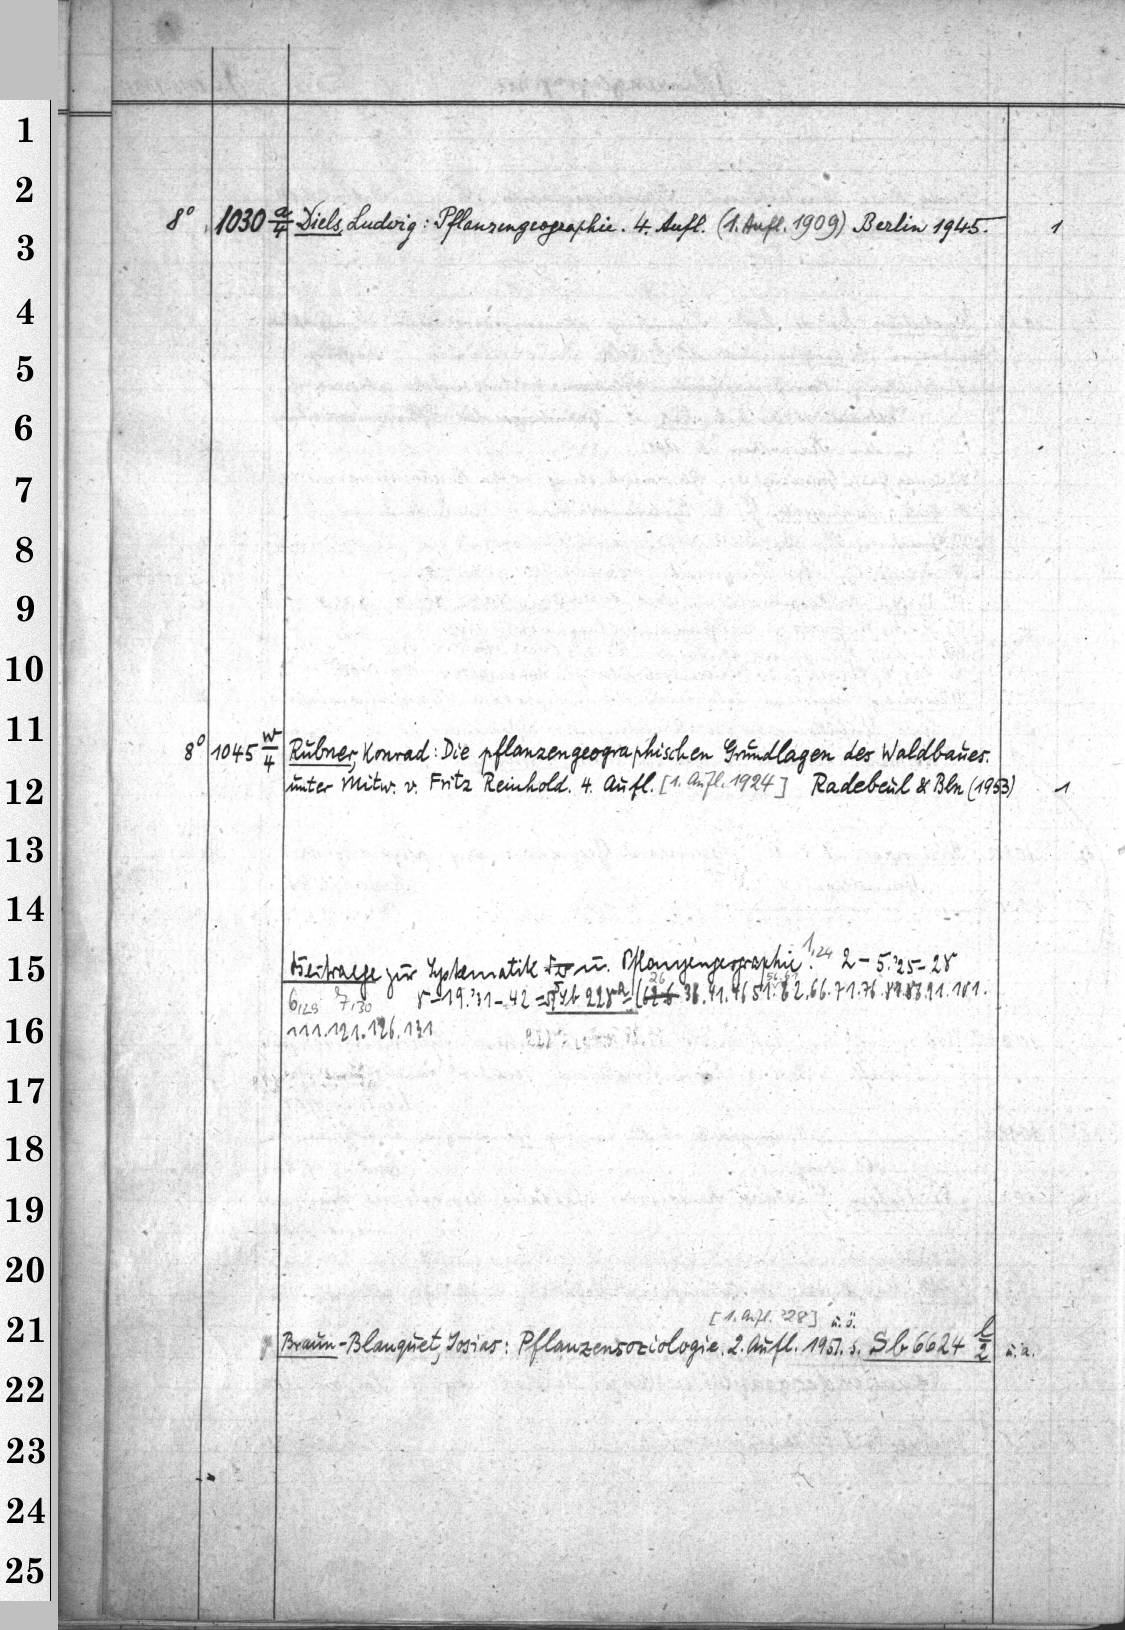 1
2
8° 1030 a/4 Diels, Ludwig: Pflanzengeographie. 4. Aufl. (1. Aufl. 1909) Berlin 1945. 1
3
4
5
6
7
8
9
10
11
8° 1045 w/4 Rubner, Konrad: Die pflanzengeographischen Grundlagen des Waldbaues.
12
unter Mitw. v. Fritz Reinhold. 4. Aufl. [1. Aufl. 1924] Radebeul & Bln (1953) 1
13
14
15
Beitraege zur Systematik u. Pflanzengeographie. 1,24 2-5.'25-28
6,29 7,30 8-19.'31-42 = 36.41.46 51. 62.66.71.76. 91.101.
16
111.121.126.131
17
18
19
20
[1. Aufl. '28] u. ö.
21
Braun-Blanquet, Josias: Pflanzensoziologie. 2. Aufl. 1951. s. Sb 6624 l/2 u. a.
22
23
24
25